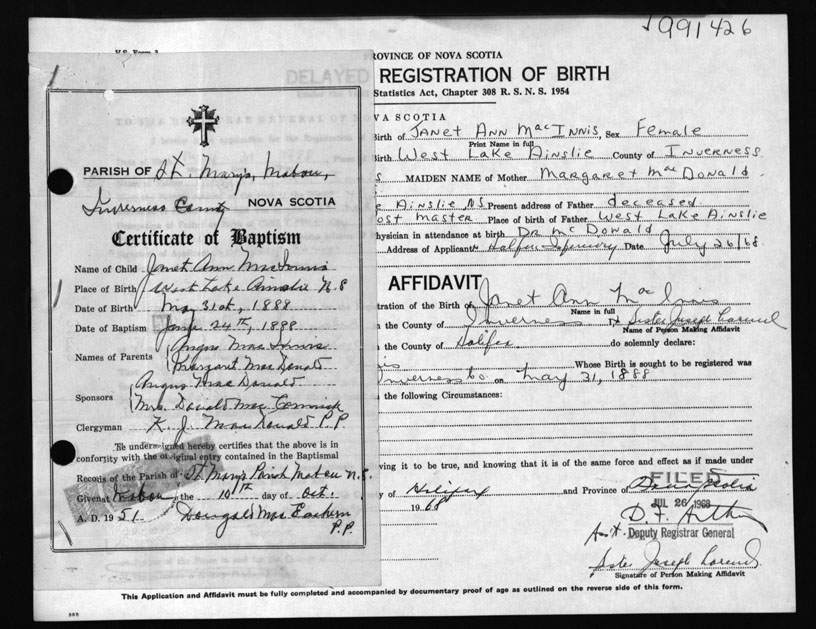 991426
PROVINCE OF NOVA SCOTIA
DELAYED REGISTRATION OF BIRTH
Statistics Act, Chapter 308 R. S. N. S. 1954
VA SCOTIA
Birth of Janet Ann MacInnis, Sex Female
Print Name in full
Birth West Lake Ainslie County of Inverness
MAIDEN NAME of Mother Margaret MacDonald
Ainslie NS Present address of Father deceased
ost master Place of birth of Father West Lake Ainslie
hysician in attendance at birth Dr McDonald
Address of Applicant Halifax Infirmary Date July 26/68
AFFIDAVIT
tration of the Birth of Janet Ann MacInnis
Name in full
n the County of Inverness Sister Joseph
Name of Person Making Affidavit
n the County of Halifax do solemnly declare:
Whose Birth is sought to be registered was
Inverness Co. on May 31, 1888
the following Circumstances:
ving it to be true, and knowing that it is of the same force and effect as if made under
y of Halifax and Province of Nova Scotia
FILED
JUL 26 1968
1968
Asst. Deputy Registrar General
Sister Joseph
Signature of Person Making Affidavit
This Application and Affidavit must be fully completed and accompanied by documentary proof of age as outlined on the reverse side of this form.
PARISH OF St. Mary's, Mabou,
Inverness County NOVA SCOTIA
Certificate of Baptism
Name of Child Janet Ann MacInnis
Place of Birth West Lake Ainslie N.S
Date of Birth May 31st, 1888
Date of Baptism June 24th, 1888
Names of Parents Angus MacInnis
Margaret MacDonald
Sponsors Angus MacDonald
Mrs. Donald MacCormick
Clergyman K. J. MacDonald P.P.
The undersigned hereby certifies that the above is in
conformity with the original entry contained in the Baptismal
Records of the Parish of St. Mary's Parish Mabou N.S.
Given at Mabou the 10th day of Oct.
A. D. 1951 Dougald MacEachern
P.P.